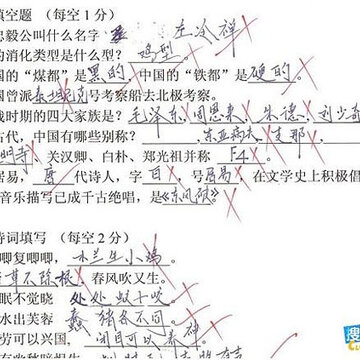 填空题 (每空1分)
忠毅公叫什么名字 左冷禅
的消化类型是什么型? 鸡型
国的“煤都”是黑的,中国的“铁都”是硬的。
国曾派泰坦尼克号考察船去北极考察。
战时期的四大家族是? 毛泽东,周恩来,朱德,刘少奇
古代,中国有哪些别称? 东亚病夫,支那,
关汉卿、白朴、郑光祖并称 F4。
居易,唐代诗人,字白,号居易,在文学史上积极倡
音乐描写已成千古绝唱,是《东风破》。
诗词填写 (每空2分)
唧复唧唧, 木兰生小鸡
斩草不除根,春风吹又生。
眠不觉晓 处处蚊子咬
水出芙蓉
劳可以兴国, 闭目可以养神
搜